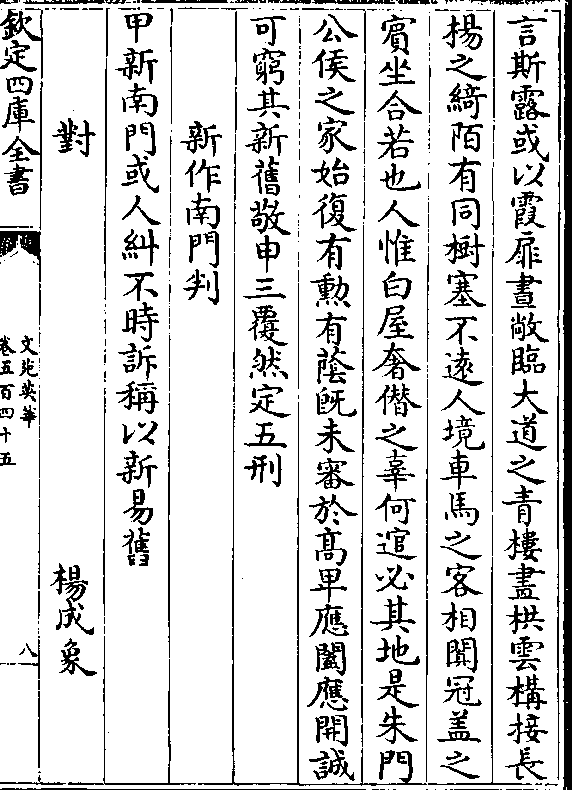 言斯露或以霞扉晝敞臨大道之青樓畫栱雲構接長
楊之綺陌有同樹塞不遠人境車馬之客相聞冠盖之
賓坐合若也人惟白屋奢僭之辜何逭必其地是朱門
公侯之家始復有勲有蔭既未審於髙卑應闔應開誠
可窮其新舊敬申三覆然定五刑
新作南門判
甲新南門或人糾不時訴稱以新易舊
對 楊成象
欽定四庫全書
文苑英華
卷五百四十五
八